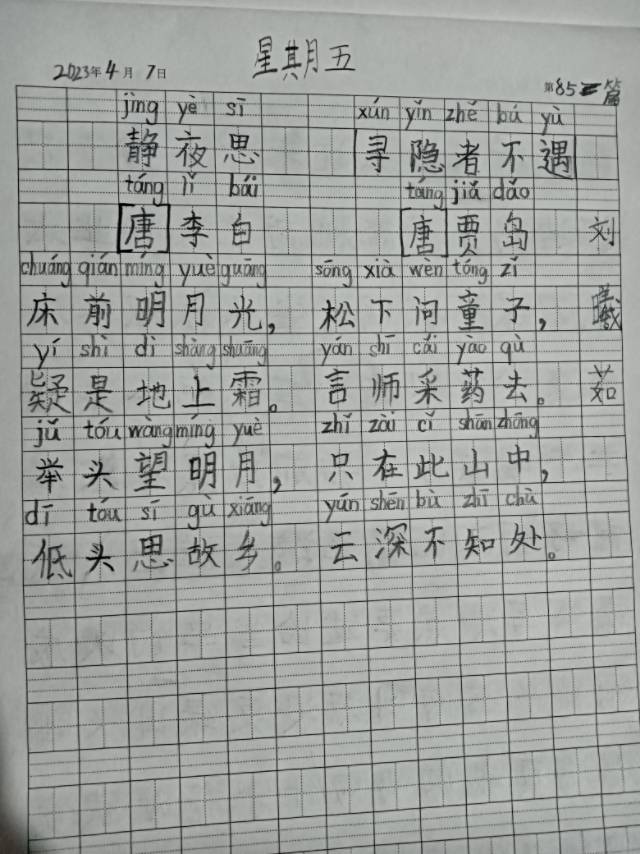 星期五
2023年4月7日
第85篇
jìng yè sī xún yǐn zhě bú yù
静夜思 寻隐者不遇
táng lǐ bái táng jiǎ dǎo
[唐]李白 [唐]贾岛 刘
chuáng qián míng yuè guāng sōng xià wèn tóng zǐ
床前明月光，松下问童子，曦
yí shì dì shàng shuāng yán shī cǎi yào qù
疑是地上霜。言师采药去。茹
jǔ tóu wàng míng yuè zhǐ zài cǐ shān zhōng
举头望明月，只在此山中，
dī tóu sī gù xiāng yún shēn bù zhī chù
低头思故乡。云深不知处。